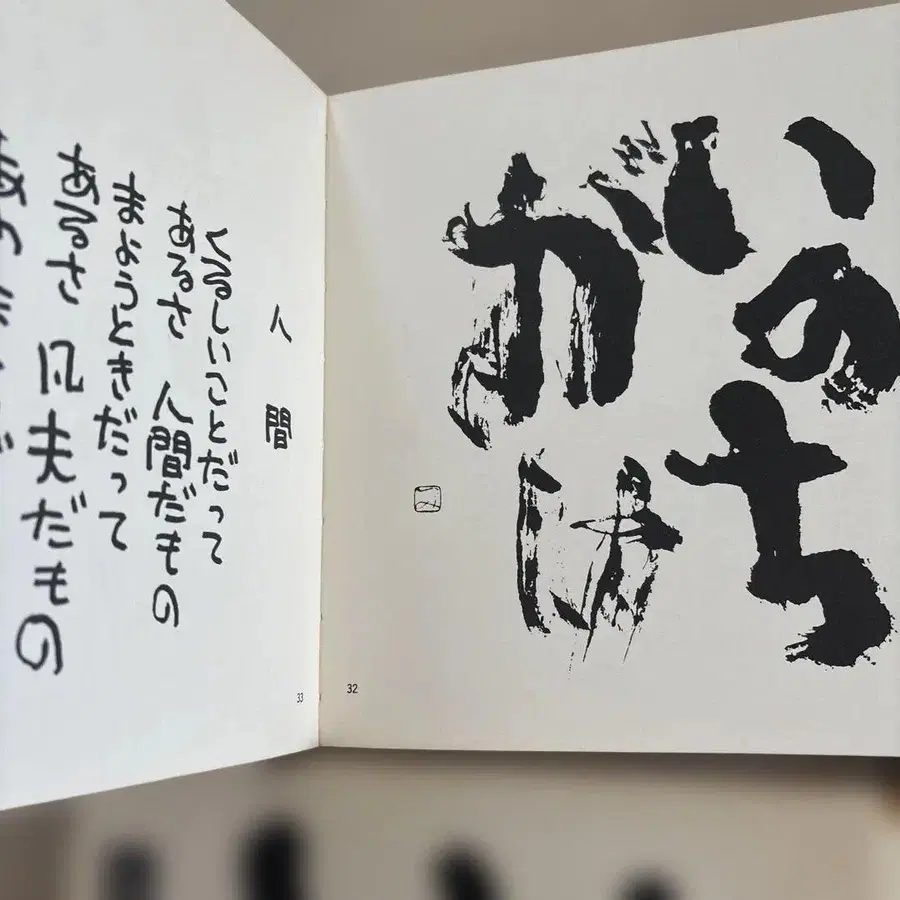 いのち
がけ
32
人間
くるしいことだって
あるさ 人間だもの
まようときだって
あるさ 凡夫だもの
33